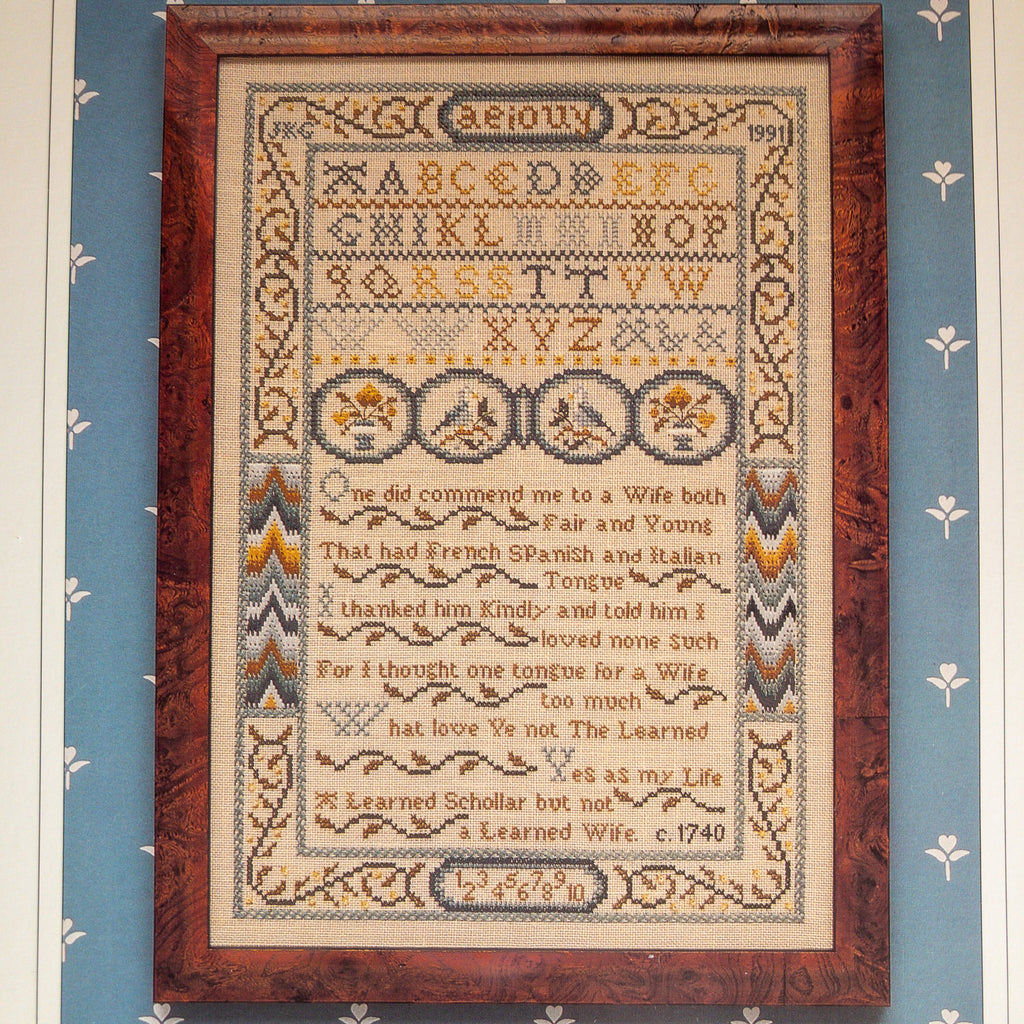 aeiouy
JRG 1991
AABCCDDEFG
GHIKLMMNOP
qQRSSTTVW
WWXYZ&&&
One did commend me to a Wife both
Fair and Young
That had French Spanish and Italian
Tongue
I thanked him Kindly and told him I
loved none such
For I thought one tongue for a Wife
too much
What love Ye not The Learned
Yes as my Life
A Learned Schollar but not
a Learned Wife. c.1740
1 2 3 4 5 6 7 8 9 10